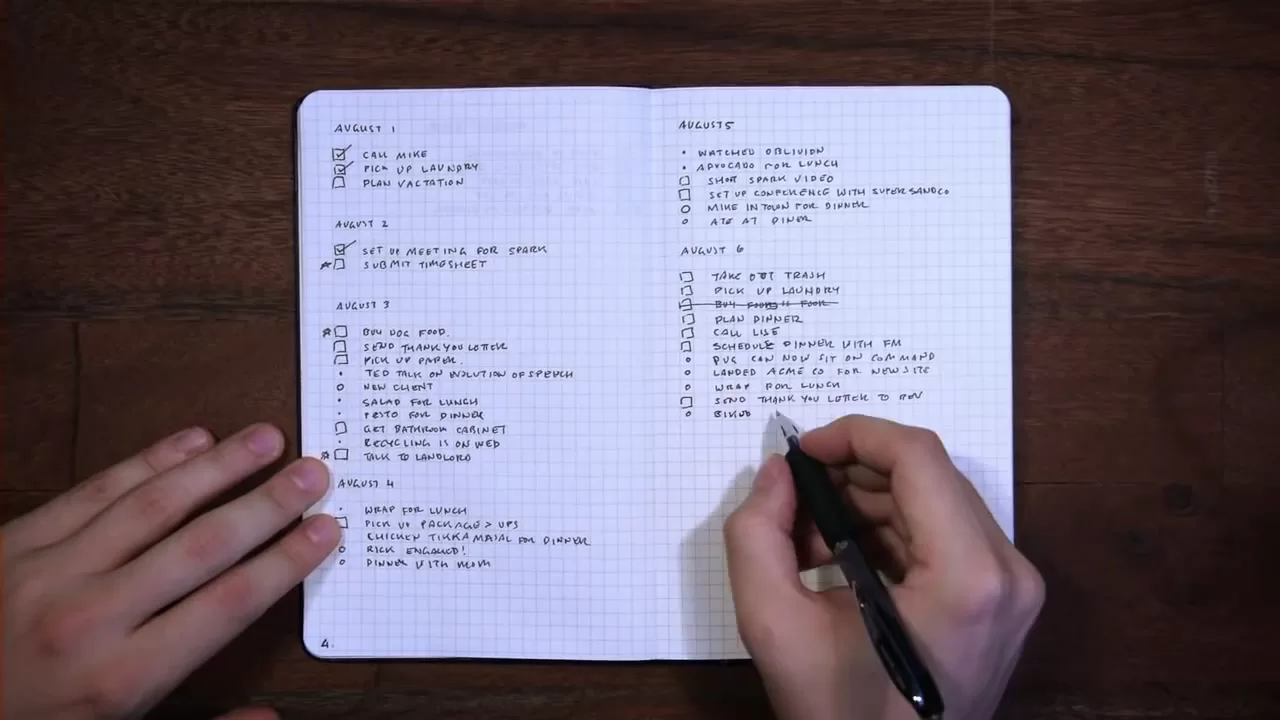 AUGUST 1
CALL MIKE
PICK UP LAUNDRY
PLAN VACTATION
AUGUST 2
SET UP MEETING FOR SPARK
SUBMIT TIMESHEET
AUGUST 3
BUY DOG FOOD.
SEND THANK YOU LETTER
PICK UP PAPER.
TED TALK ON EVOLUTION OF SPEECH
NEW CLIENT
SALAD FOR LUNCH
PESTO FOR DINNER
GET BATHROOM CABINET
RECYCLING IS ON WED
TALK TO LANDLORD
AUGUST 4
WRAP FOR LUNCH
PICK UP PACKAGE > UPS
CHICKEN TIKKA MASAL FOR DINNER
RICK ENGAGED!
DINNER WITH MOM
4.
AUGUST 5
WATCHED OBLIVION
ADVOCADO FOR LUNCH
SHOOT SPARK VIDEO
SET UP CONFERENCE WITH SUPERSANDCO
MIKE IN TOWN FOR DINNER
ATE AT DINER
AUGUST 6
TAKE OUT TRASH
PICK UP LAUNDRY
BUY
PLAN DINNER
CALL LISE
SCHEDULE DINNER WITH FM
PUG CAN NOW SIT ON COMMAND
LANDED ACME CO FOR NEW SITE
WRAP FOR LUNCH
SEND THANK YOU LETTER TO